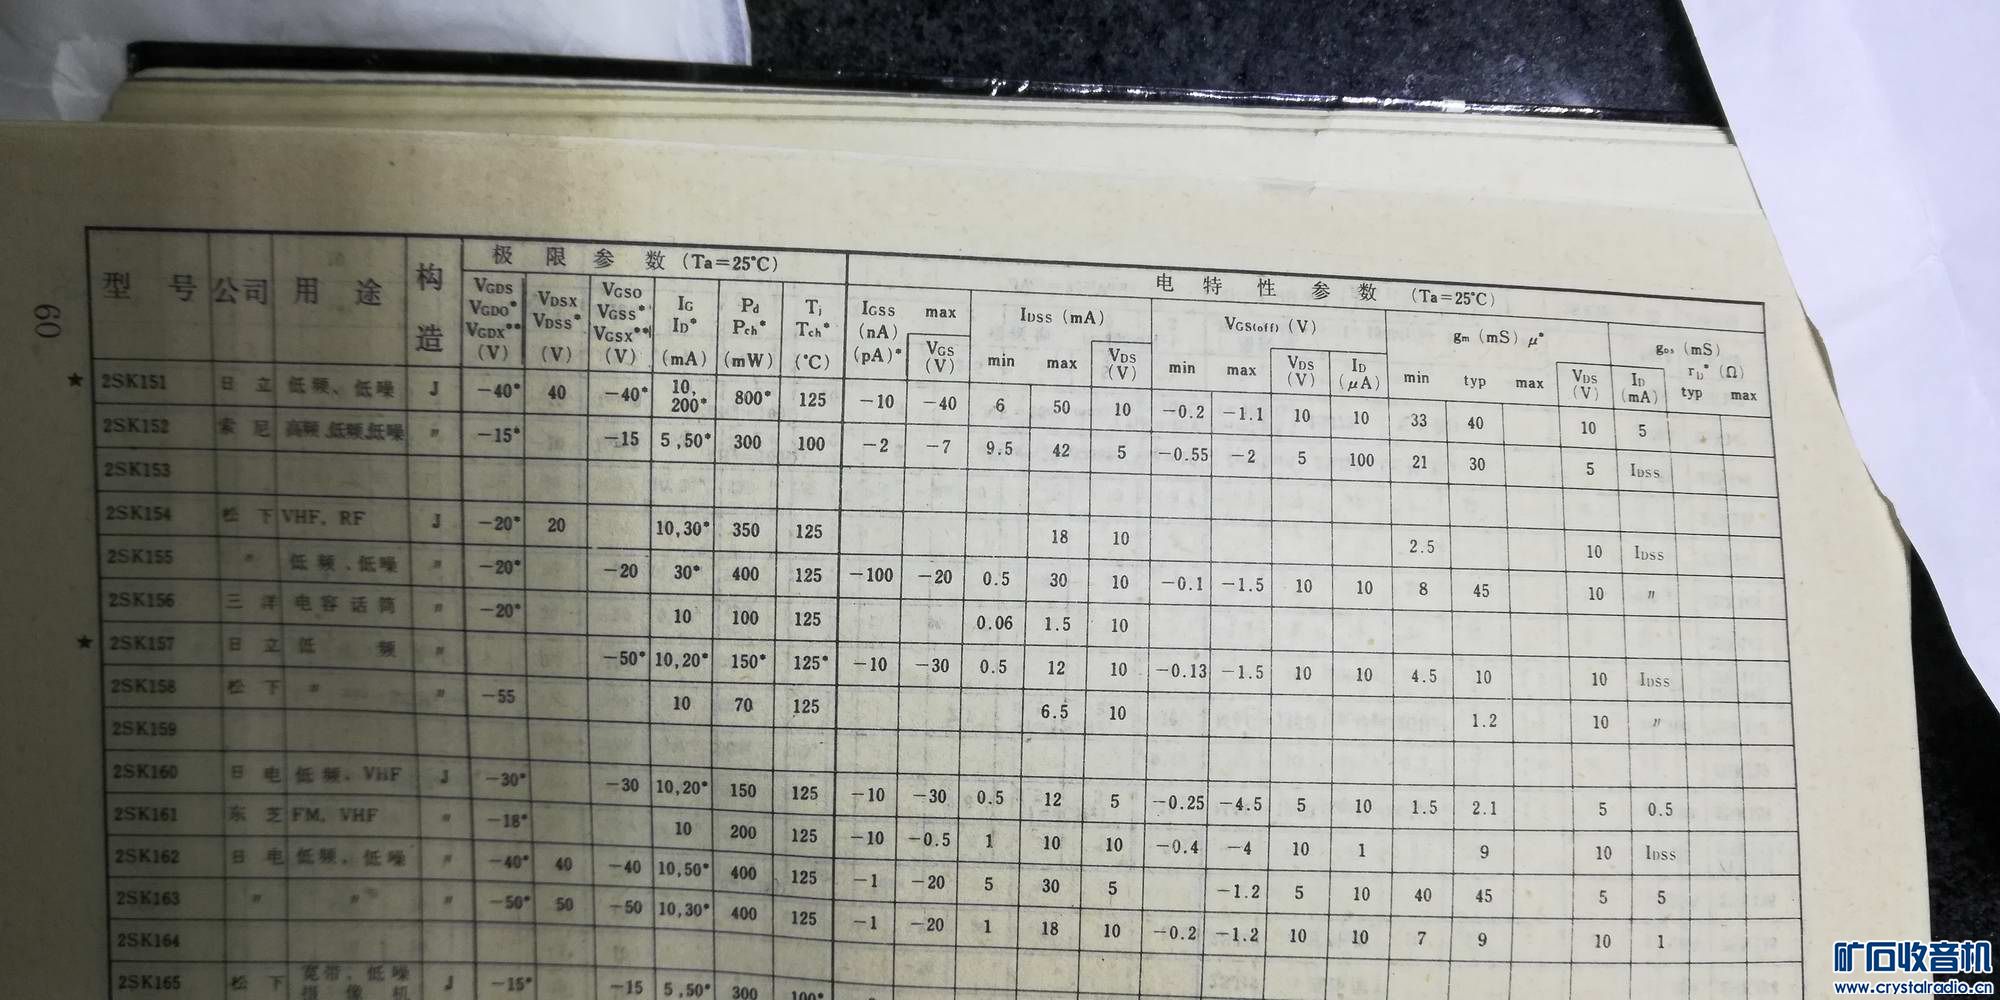 60
极 限 参 数 (Ta=25℃) 电 特 性 参 数 (Ta=25℃)
型 号 公司 用 途 构造 VGDS VGDO* VGDX** (V) VDSX VDSS* (V) VGSO VGSS* VGSX** (V) IG ID* (mA) Pd Pch* (mW) Tj Tch* (℃) IGSS max (nA) (pA)* VGS (V) IDSS (mA) min max VDS (V) VGS(off) (V) min max VDS (V) ID (μA) gm (mS) μ* min typ max VDS (V) ID (mA) gDS (mS) rD* (Ω) typ max
★ 2SK151 日 立 低频、低噪 J -40* 40 -40* 10, 200* 800* 125 -10 -40 6 50 10 -0.2 -1.1 10 10 33 40 10 5
2SK152 索 尼 高频、低频、低噪 〃 -15* -15 5,50* 300 100 -2 -7 9.5 42 5 -0.55 -2 5 100 21 30 5 IDSS
2SK153
2SK154 松 下 VHF, RF J -20* 20 10,30* 350 125 18 10 2.5 10 IDSS
2SK155 〃 低频、低噪 〃 -20* -20 30* 400 125 -100 -20 0.5 30 10 -0.1 -1.5 10 10 8 45 10 〃
2SK156 三 洋 电容话筒 〃 -20* 10 100 125 0.06 1.5 10
★ 2SK157 日 立 低 频 〃 -50* 10,20* 150* 125* -10 -30 0.5 12 10 -0.13 -1.5 10 10 4.5 10 10 IDSS
2SK158 松 下 〃 〃 -55 10 70 125 6.5 10 1.2 10 〃
2SK159
2SK160 日 电 低频、VHF J -30* -30 10,20* 150 125 -10 -30 0.5 12 5 -0.25 -4.5 5 10 1.5 2.1 5 0.5
2SK161 东 芝 FM, VHF 〃 -18* 10 200 125 -10 -0.5 1 10 10 -0.4 -4 10 1 9 10 IDSS
2SK162 日 电 低频、低噪 〃 -40* 40 -40 10,50* 400 125 -1 -20 5 30 5 -1.2 5 10 40 45 5 5
2SK163 〃 〃 〃 -50* 50 -50 10,30* 400 125 -1 -20 1 18 10 -0.2 -1.2 10 10 7 9 10 1
2SK164
2SK165 松 下 宽带、低噪 J -15* -15 5,50* 300 100*
矿石收音机
www.crystalradio.cn